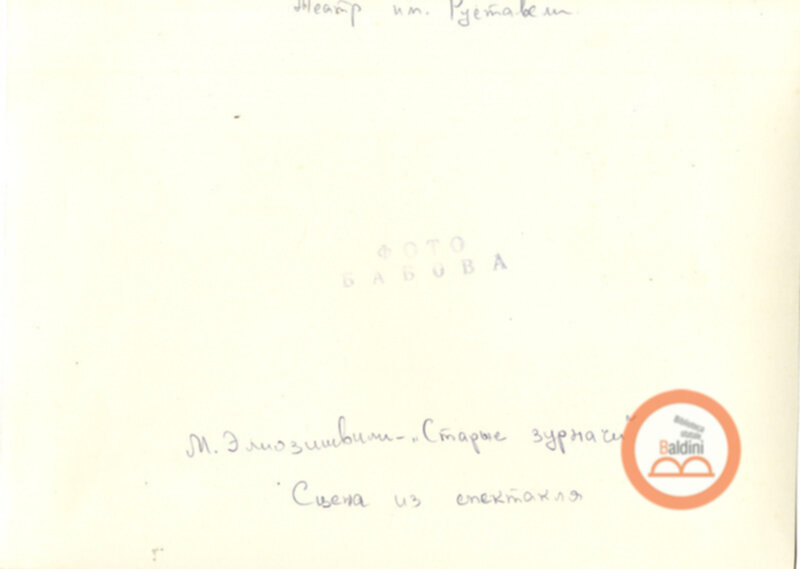 Театр им. Руставели
ФОТО
БАБОВА
М. Элиозишвили - „Старые зурначи"
Сцена из спектакля
Biblioteca
statale
Baldini